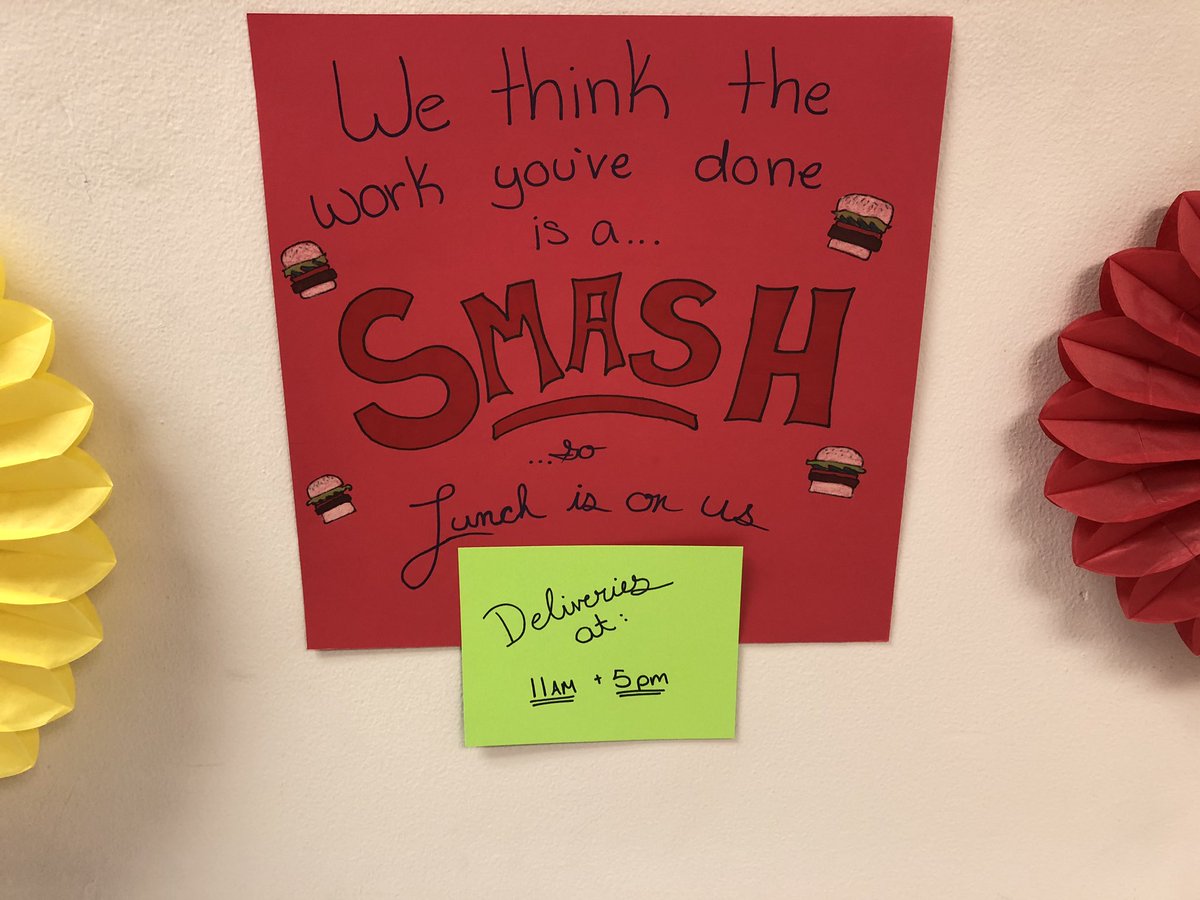 We think the
work you've done
is a...
SMASH
...so
Lunch is on us
Deliveries
at:
11AM + 5pm